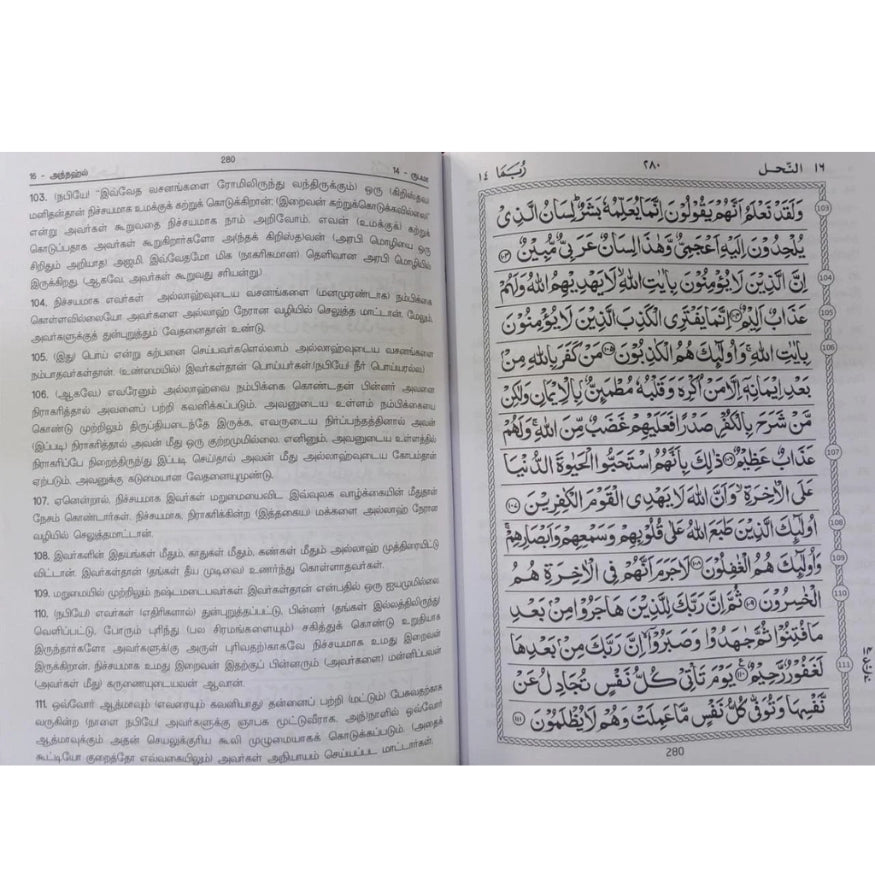 280
16 - அந்நஹ்ல் 14 - ருபமா
103. (நபியே! "இவ்வேத வசனங்களை ரோமிலிருந்து வந்திருக்கும்) ஒரு (கிறிஸ்தவ)
மனிதன்தான் நிச்சயமாக உமக்குக் கற்றுக் கொடுக்கிறான்; (இறைவன் கற்றுக்கொடுக்கவில்லை)"
என்று அவர்கள் கூறுவதை நிச்சயமாக நாம் அறிவோம். எவன் (உமக்குக்) கற்றுக்
கொடுப்பதாக அவர்கள் கூறுகிறார்களோ அ(ந்தக் கிறிஸ்த)வன் (அரபி மொழியை ஒரு
சிறிதும் அறியாத) அஜமி. இவ்வேதமோ மிக (நாகரிகமான) தெளிவான அரபி மொழியில்
இருக்கிறது. (ஆகவே, அவர்கள் கூறுவது சரியன்று.)
104. நிச்சயமாக எவர்கள் அல்லாஹ்வுடைய வசனங்களை (மனமுரண்டாக) நம்பிக்கை
கொள்ளவில்லையோ அவர்களை அல்லாஹ் நேரான வழியில் செலுத்த மாட்டான். மேலும்,
அவர்களுக்குத் துன்புறுத்தும் வேதனைதான் உண்டு.
105. (இது) பொய் என்று கற்பனை செய்பவர்களெல்லாம் அல்லாஹ்வுடைய வசனங்களை
நம்பாதவர்கள்தான். (உண்மையில்) இவர்கள்தான் பொய்யர்கள்.(நபியே! நீர் பொய்யரல்ல.)
106. (ஆகவே) எவரேனும் அல்லாஹ்வை நம்பிக்கை கொண்டதன் பின்னர் அவனை
நிராகரித்தால் அவனைப் பற்றி கவனிக்கப்படும். அவனுடைய உள்ளம் நம்பிக்கையை
கொண்டு முற்றிலும் திருப்தியடைந்தே இருக்க, எவருடைய நிர்ப்பந்தத்தினால் அவன்
(இப்படி) நிராகரித்தால் அவன் மீது ஒரு குற்றமுமில்லை. எனினும், அவனுடைய உள்ளத்தில்
நிராகரிப்பே நிறைந்திருந்(து இப்படி செய்)தால் அவன் மீது அல்லாஹ்வுடைய கோபம்தான்
ஏற்படும். அவனுக்கு கடுமையான வேதனையுமுண்டு.
107. ஏனென்றால், நிச்சயமாக இவர்கள் மறுமையைவிட இவ்வுலக வாழ்க்கையின் மீதுதான்
நேசம் கொண்டார்கள். நிச்சயமாக, நிராகரிக்கின்ற (இத்தகைய) மக்களை அல்லாஹ் நேரான
வழியில் செலுத்தமாட்டான்.
108. இவர்களின் இதயங்கள் மீதும், காதுகள் மீதும், கண்கள் மீதும் அல்லாஹ் முத்திரையிட்டு
விட்டான். இவர்கள்தான் (தங்கள் தீய முடிவை) உணர்ந்து கொள்ளாதவர்கள்.
109. மறுமையில் முற்றிலும் நஷ்டமடைபவர் இவர்கள்தான் என்பதில் ஒரு ஐயமுமில்லை
110. (நபியே!) எவர்கள் (எதிரிகளால்) துன்புறுத்தப்பட்டு, பின்னர் (தங்கள் இல்லத்திலிருந்து
வெளிப்பட்டு, போரும் புரிந்து (பல சிரமங்களையும்) சகித்துக் கொண்டு உறுதியாக
இருந்தார்களோ அவர்களு(க்கு அருள் புரிவதற்)காகவே நிச்சயமாக உமது இறைவன்
இருக்கிறான். நிச்சயமாக உமது இறைவன் இதற்குப் பின்னரும் (அவர்களை) மன்னிப்பவன்
(அவர்கள் மீது) கருணையுடையவன் ஆவான்.
111. ஒவ்வோர் ஆத்மாவும் (எவரையும் கவனியாது) தன்னைப் பற்றி (மட்டும்) பேசுவதற்காக
வருகின்ற (நாளை நபியே! அவர்களுக்கு ஞாபக மூட்டுவீராக. அந்)நாளில் ஒவ்வோர்
ஆத்மாவுக்கும் அதன் செயலுக்குரிய கூலி முழுமையாகக் கொடுக்கப்படும். (அதைக்
கூட்டியோ குறைத்தோ எவ்வகையிலும்) அவர்கள் அநியாயம் செய்யப்பட மாட்டார்கள்.
١٦ النّحل ٢٨٠ رُبَمَا ١٤
وَلَقَدْ نَعْلَمُ اَنَّهُمْ يَقُوْلُوْنَ اِنَّمَا يُعَلِّمُهٗ بَشَرٌ ؕ لِسَانُ الَّذِىْ 103
يُلْحِدُوْنَ اِلَيْهِ اَعْجَمِىٌّ وَّهٰذَا لِسَانٌ عَرَبِىٌّ مُّبِيْنٌ ﴿۱۰۳﴾
اِنَّ الَّذِيْنَ لَا يُؤْمِنُوْنَ بِاٰيٰتِ اللّٰهِ ۙ لَا يَهْدِيْهِمُ اللّٰهُ وَلَهُمْ 104
عَذَابٌ اَلِيْمٌ ﴿۱۰۴﴾ اِنَّمَا يَفْتَرِى الْكَذِبَ الَّذِيْنَ لَا يُؤْمِنُوْنَ 105
بِاٰيٰتِ اللّٰهِ ۚ وَاُولٰٓئِكَ هُمُ الْكٰذِبُوْنَ ﴿۱۰۵﴾ مَنْ كَفَرَ بِاللّٰهِ مِنْۢ 106
بَعْدِ اِيْمَانِهٖۤ اِلَّا مَنْ اُكْرِهَ وَقَلْبُهٗ مُطْمَئِنٌّۢ بِالْاِيْمَانِ وَلٰكِنْ
مَّنْ شَرَحَ بِالْكُفْرِ صَدْرًا فَعَلَيْهِمْ غَضَبٌ مِّنَ اللّٰهِ ۚ وَلَهُمْ
عَذَابٌ عَظِيْمٌ ﴿۱۰۶﴾ ذٰلِكَ بِاَنَّهُمُ اسْتَحَبُّوا الْحَيٰوةَ الدُّنْيَا 107
عَلَى الْاٰخِرَةِ ۙ وَاَنَّ اللّٰهَ لَا يَهْدِى الْقَوْمَ الْكٰفِرِيْنَ ﴿۱۰۷﴾
اُولٰٓئِكَ الَّذِيْنَ طَبَعَ اللّٰهُ عَلٰى قُلُوْبِهِمْ وَسَمْعِهِمْ وَاَبْصَارِهِمْ ۚ 108
وَاُولٰٓئِكَ هُمُ الْغٰفِلُوْنَ ﴿۱۰۸﴾ لَا جَرَمَ اَنَّهُمْ فِى الْاٰخِرَةِ هُمُ 109
الْخٰسِرُوْنَ ﴿۱۰۹﴾ ثُمَّ اِنَّ رَبَّكَ لِلَّذِيْنَ هَاجَرُوْا مِنْۢ بَعْدِ 110
مَا فُتِنُوْا ثُمَّ جٰهَدُوْا وَصَبَرُوْۤا ۙ اِنَّ رَبَّكَ مِنْۢ بَعْدِهَا
لَغَفُوْرٌ رَّحِيْمٌ ﴿۱۱۰﴾ يَوْمَ تَاْتِىْ كُلُّ نَفْسٍ تُجَادِلُ عَنْ 111
نَّفْسِهَا وَتُوَفّٰى كُلُّ نَفْسٍ مَّا عَمِلَتْ وَهُمْ لَا يُظْلَمُوْنَ ﴿۱۱۱﴾
280